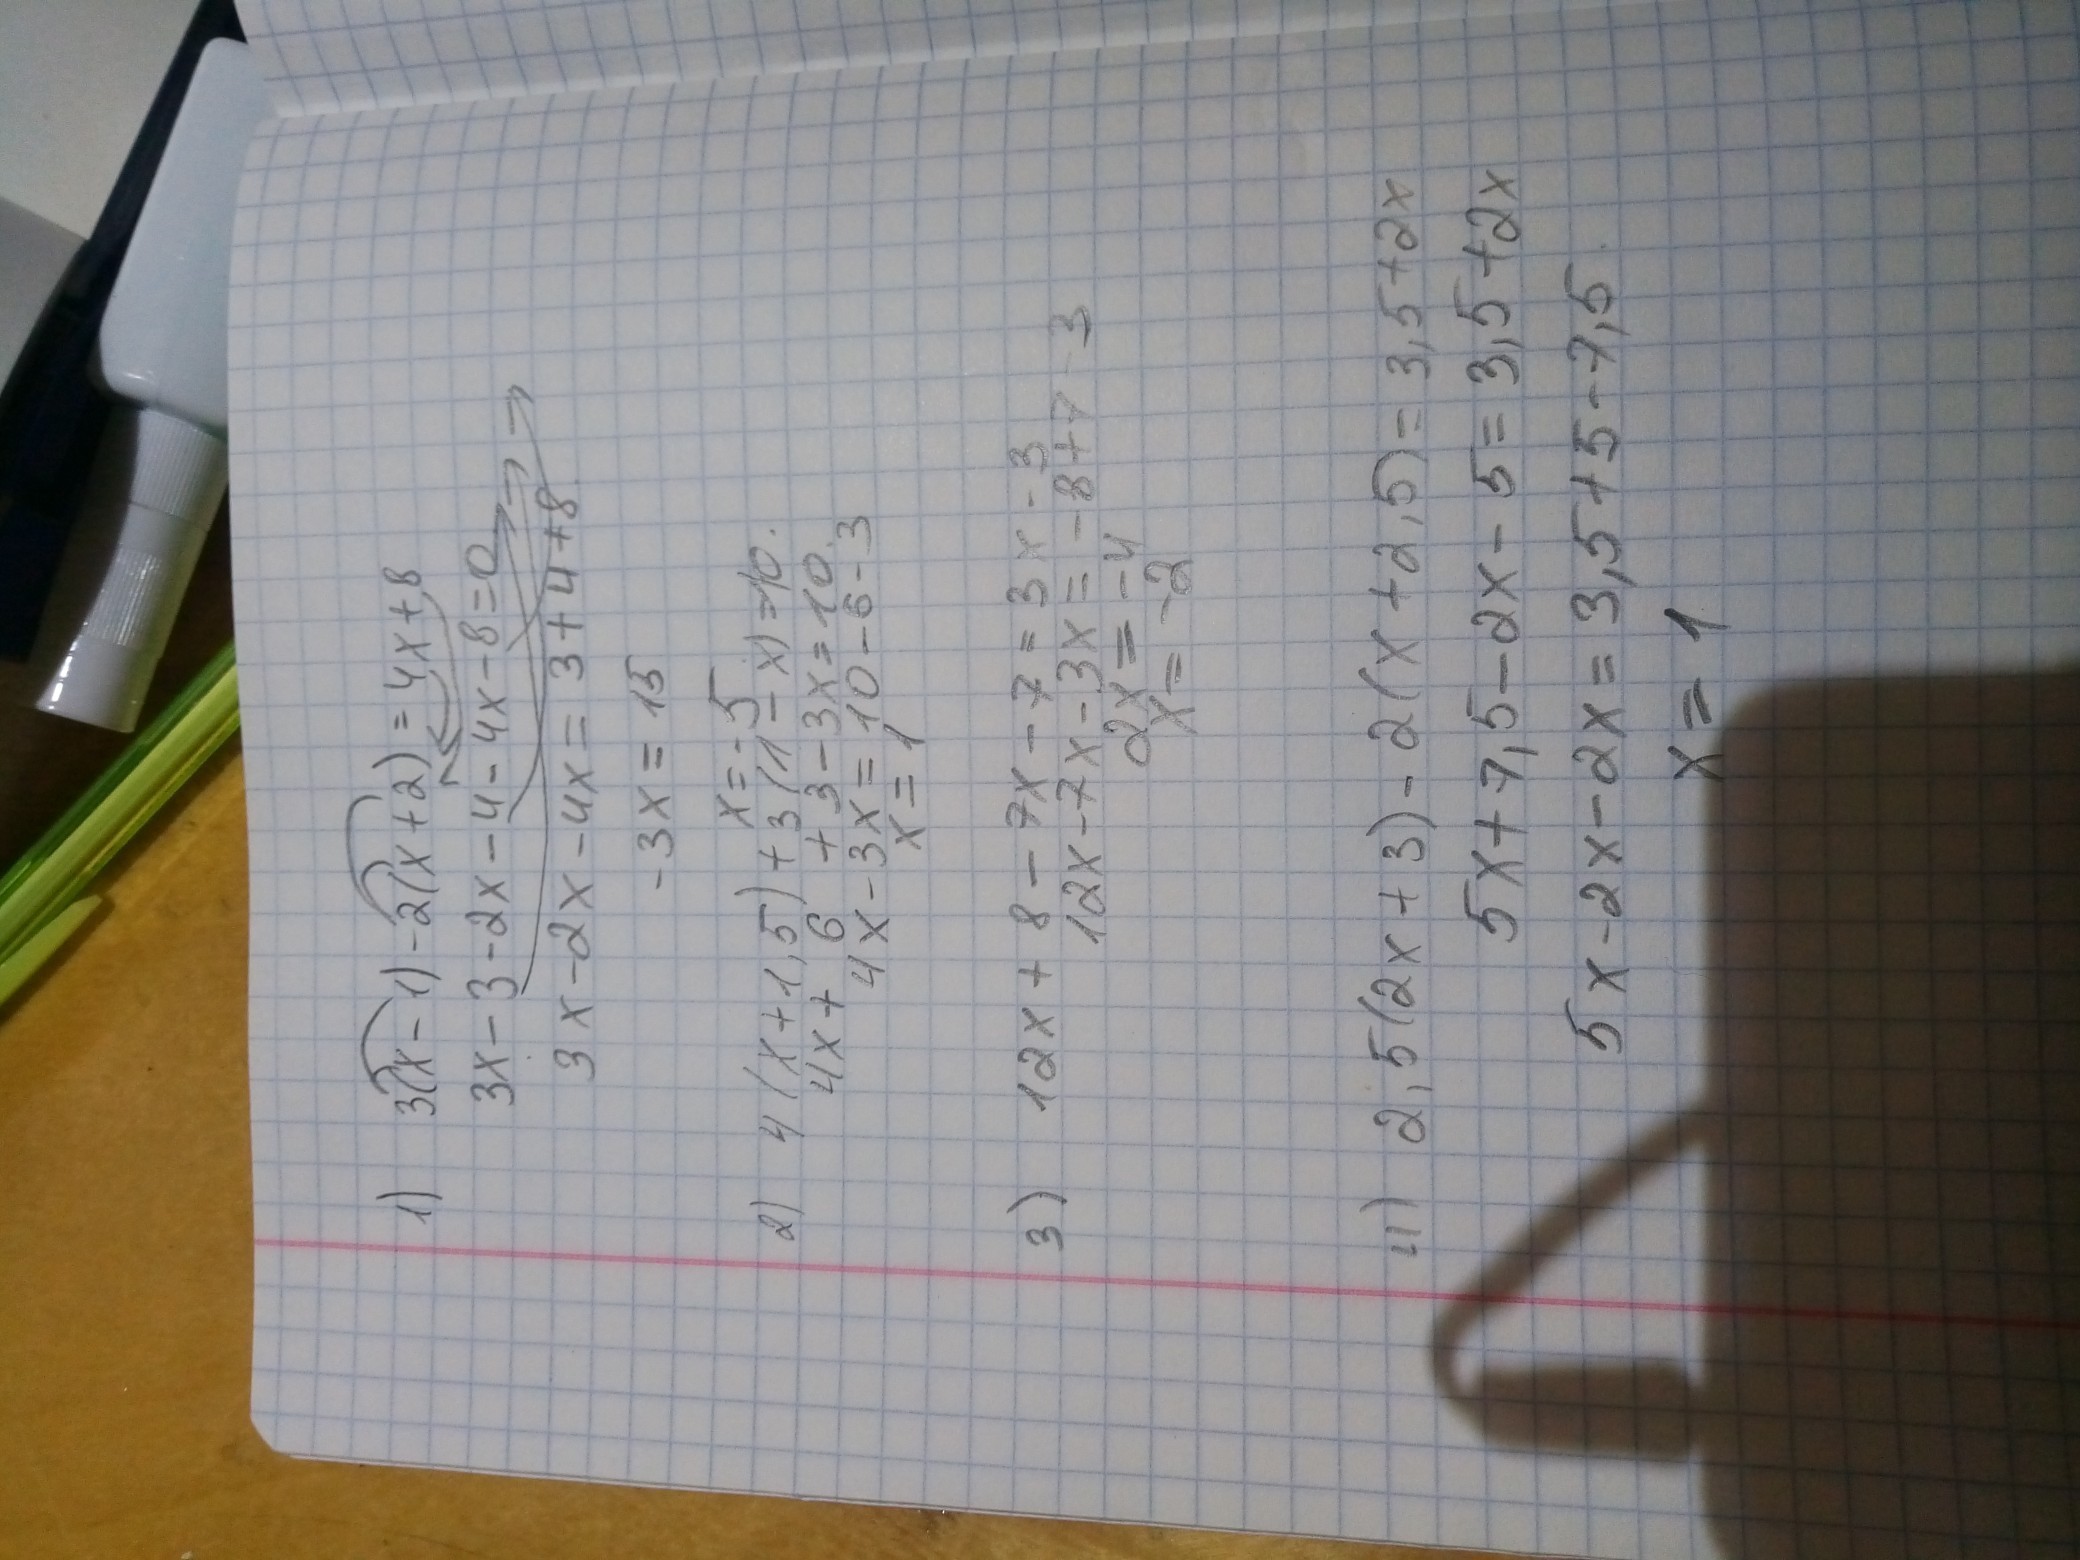 1) 3(x-1)-2(x+2)=4x+8
3x-3-2x-4-4x-8=0
3x-2x-4x=3+4+8
-3x=15
x=-5
2) 4(x+1,5)+3(1-x)=10.
4x+6+3-3x=10.
4x-3x=10-6-3
x=1
3) 12x+8-7x-7=3x-3
12x-7x-3x=-8+7-3
2x=-4
x=-2
4) 2,5(2x+3)-2(x+2,5)=3,5+2x
5x+7,5-2x-5=3,5+2x
5x-2x-2x=3,5+5-7,5
x=1